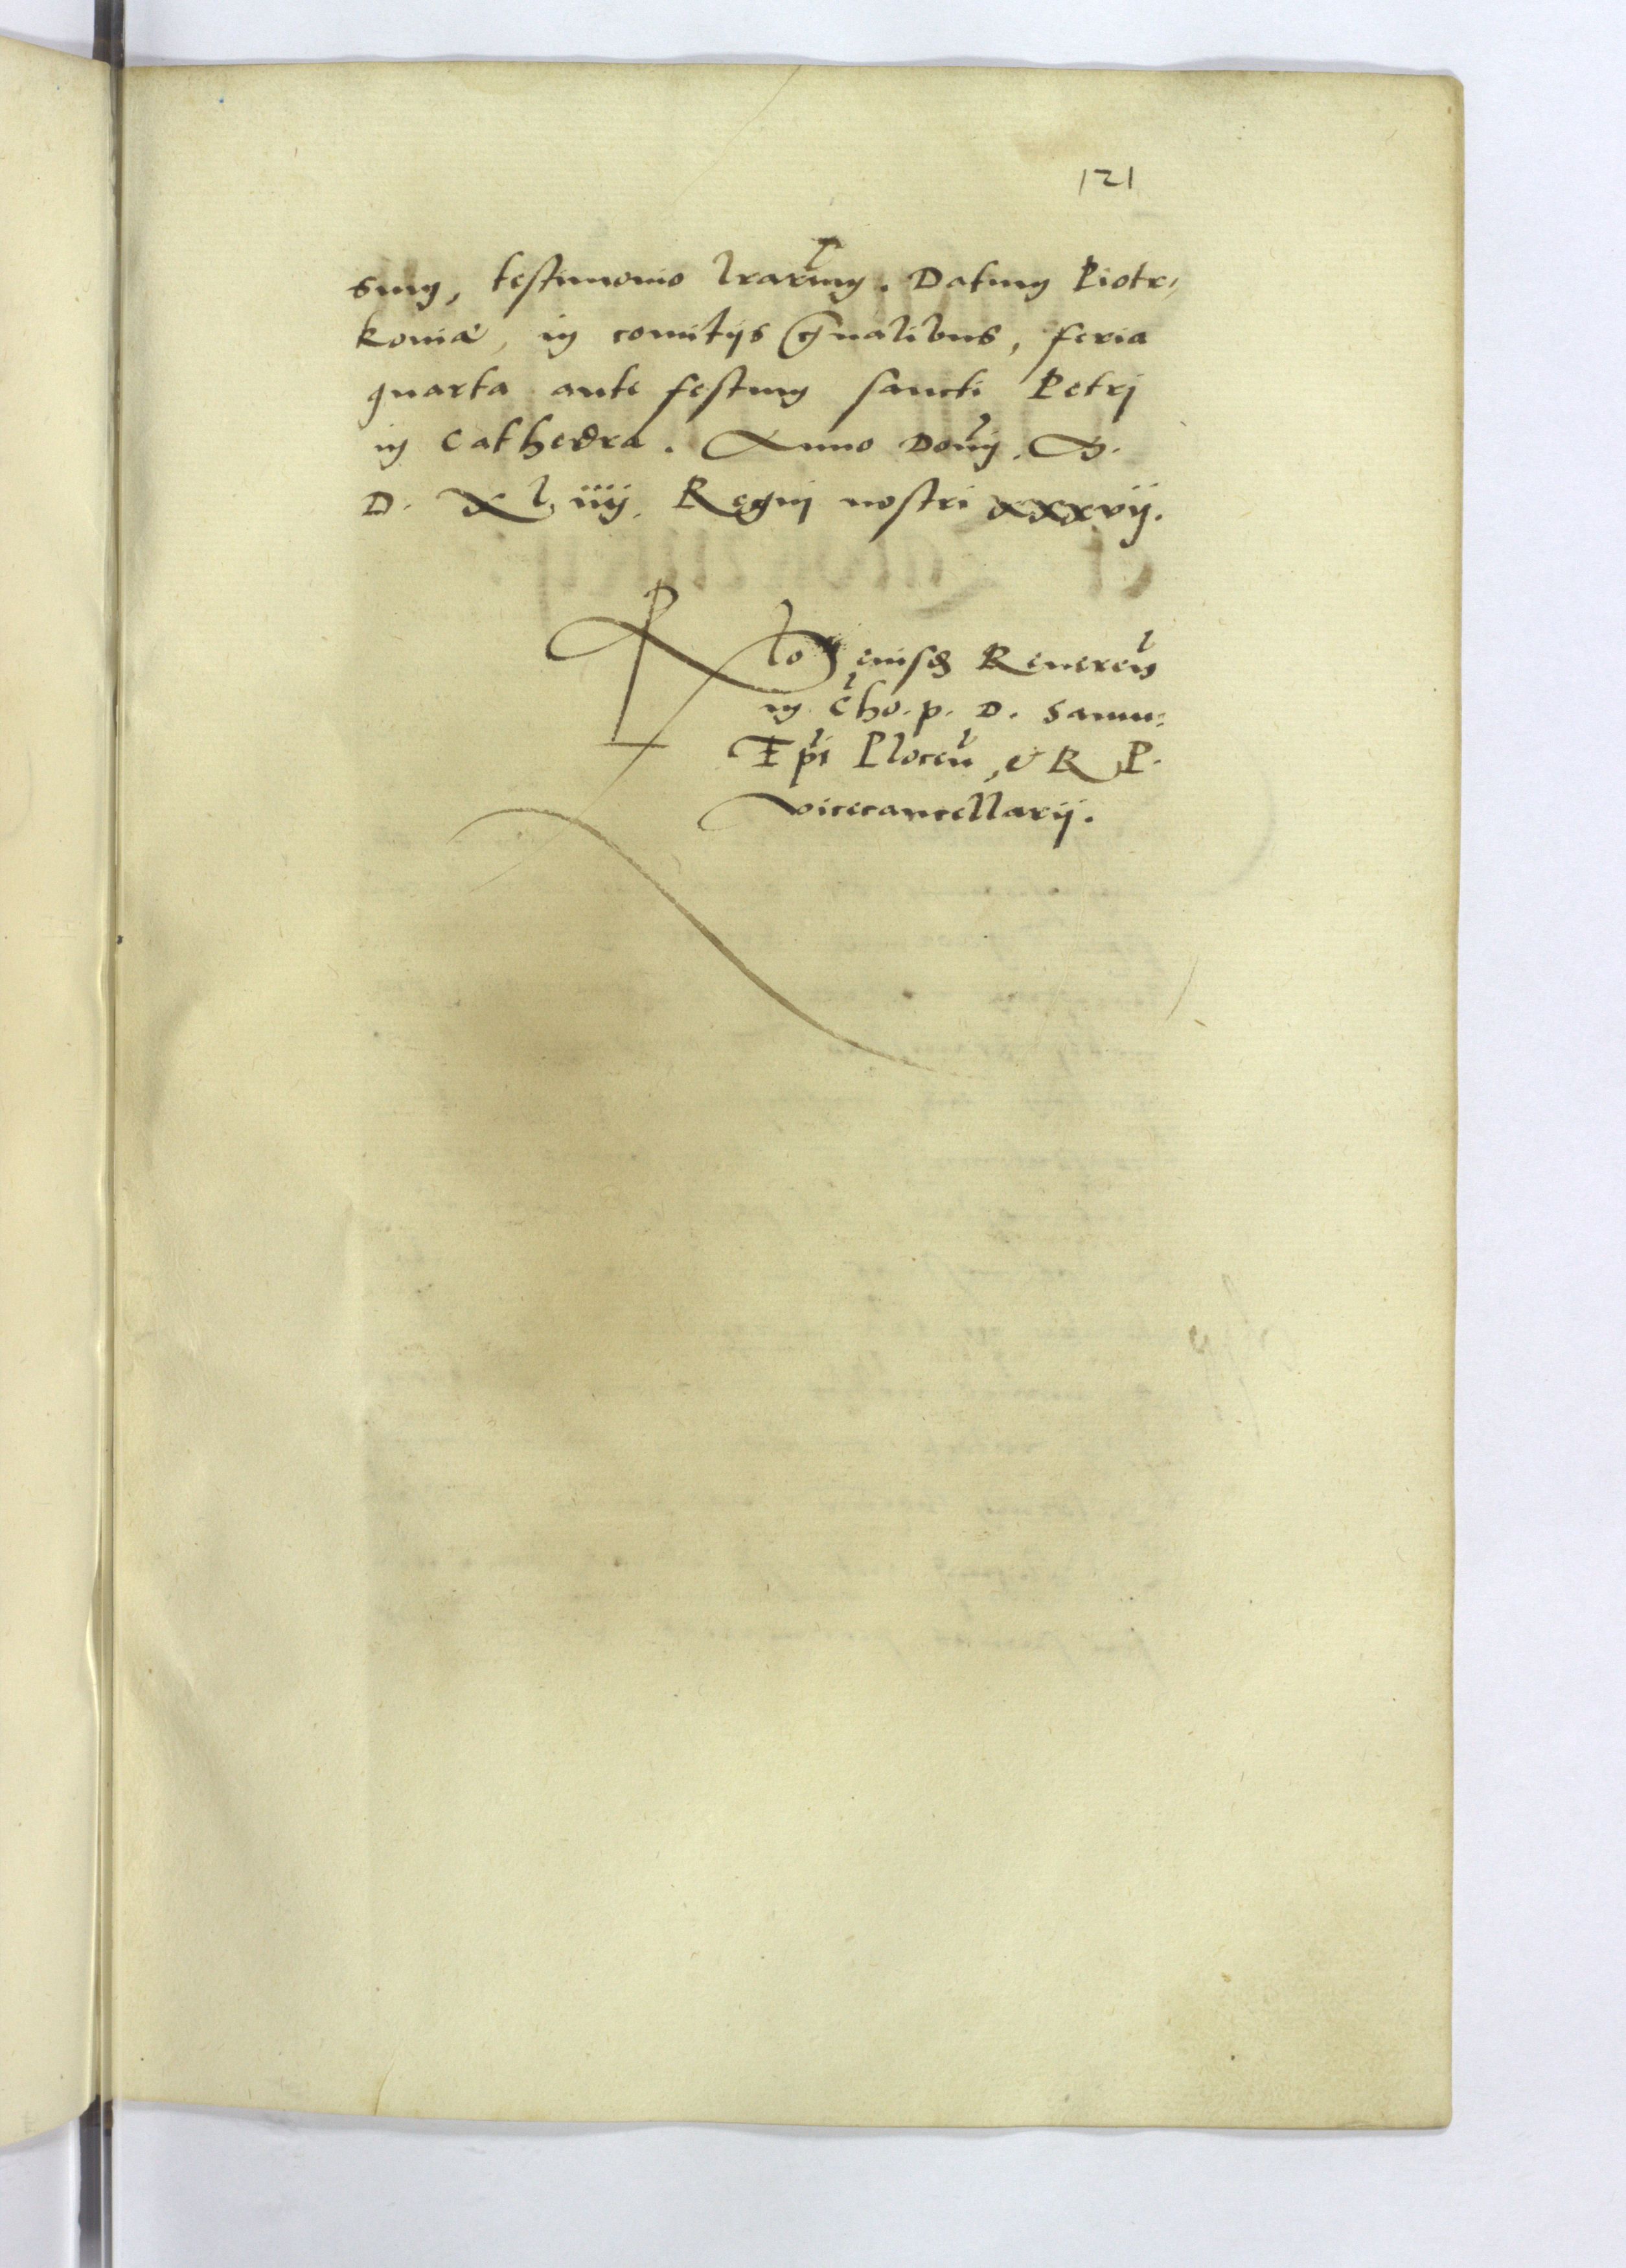 121
sum, testimonio lrarum. Datum Piotr,,
koviæ, in comitijs gnalibus, feria
quarta ante festum sancti Petri
in Cathedra. Anno Domj. M.
D. XLiiij. Regnj nostri xxxvij.
Rlo eiusd Reveren
in Chro. p. D. Samu:
Epi Plocen, & R. P.
vicecancellarij.